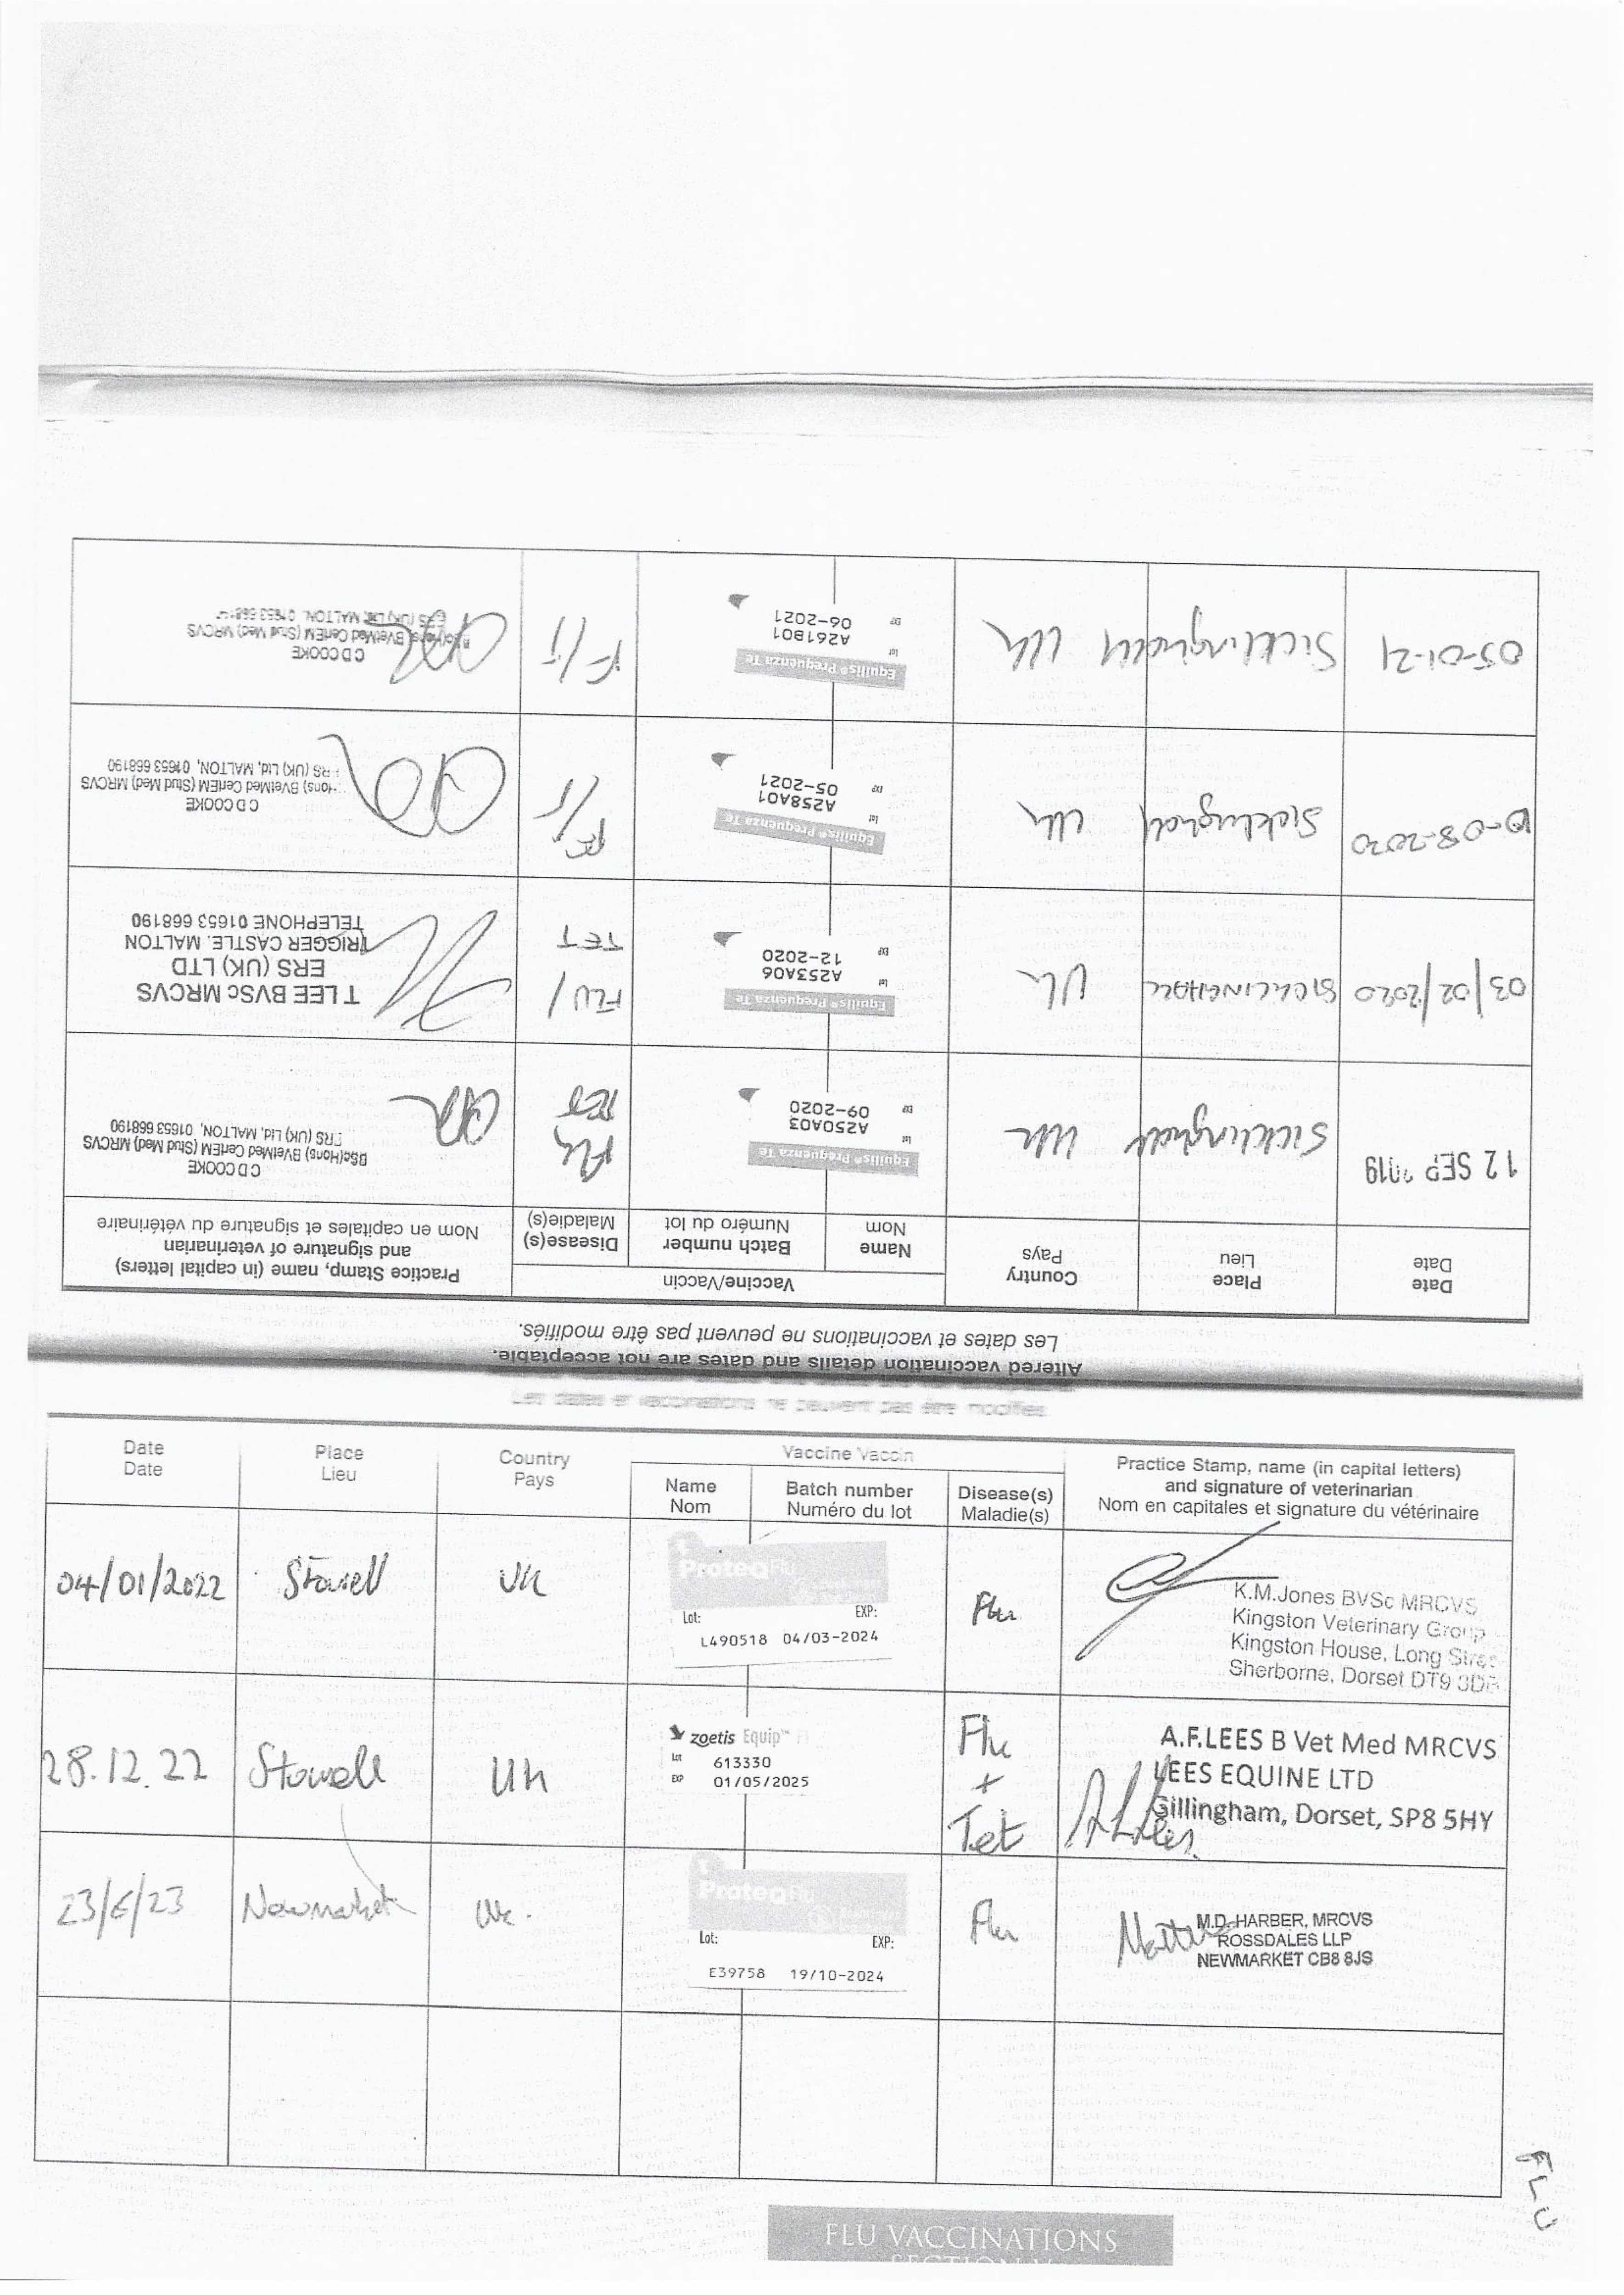 Altered vaccination details and dates are not acceptable.
Les dates et vaccinations ne peuvent pas être modifiés.
Date
Date
Place
Lieu
Country
Pays
Vaccine/Vaccin
Name
Nom
Batch number
Numéro du lot
Disease(s)
Maladie(s)
Practice Stamp, name (in capital letters)
and signature of veterinarian
Nom en capitales et signature du vétérinaire
12 SEP 2019
Sicklinghall
UK
Equilis® Prequenza Te
Lot
A250A03
EXP
09-2020
Flu
Tet
C D COOKE
BSc(Hons) BVetMed CertEM (Stud Med) MRCVS
ERS (UK) Ltd, MALTON, 01653 668190
03/02/2020
SICKLINGHALL
UK
Equilis® Prequenza Te
Lot
A253A06
EXP
12-2020
FLU/
TET
T LEE BVSc MRCVS
ERS (UK) LTD
TRIGGER CASTLE. MALTON
TELEPHONE 01653 668190
10-08-2020
Sicklinghall
UK
Equilis® Prequenza Te
Lot
A258A01
EXP
05-2021
F/T
C D COOKE
Hons) BVetMed CertEM (Stud Med) MRCVS
ERS (UK) Ltd, MALTON, 01653 668190
05-01-21
Sicklinghall
UK
Equilis® Prequenza Te
Lot
A261B01
EXP
06-2021
F/T
C D COOKE
BSc(Hons) BVetMed CertEM (Stud Med) MRCVS
ERS (UK) Ltd, MALTON, 01653 668190
Les dates et vaccinations ne peuvent pas être modifiés.
Date
Date
Place
Lieu
Country
Pays
Vaccine Vaccin
Name
Nom
Batch number
Numéro du lot
Disease(s)
Maladie(s)
Practice Stamp, name (in capital letters)
and signature of veterinarian
Nom en capitales et signature du vétérinaire
04/01/2022
Stowell
UK
ProteqFlu
Lot: EXP:
L490518 04/03-2024
Flu
K.M.Jones BVSc MRCVS
Kingston Veterinary Group
Kingston House, Long Stree
Sherborne, Dorset DT9 3DB
28.12.22
Stowell
UK
zoetis Equip™
Lot 613330
EXP 01/05/2025
Flu
+
Tet
A.F.LEES B Vet Med MRCVS
LEES EQUINE LTD
Gillingham, Dorset, SP8 5HY
23/6/23
Newmarket
UK.
ProteqFlu
Lot: EXP:
E39758 19/10-2024
Flu
M.D. HARBER, MRCVS
ROSSDALES LLP
NEWMARKET CB8 8JS
FLU
FLU VACCINATIONS
SECTION V